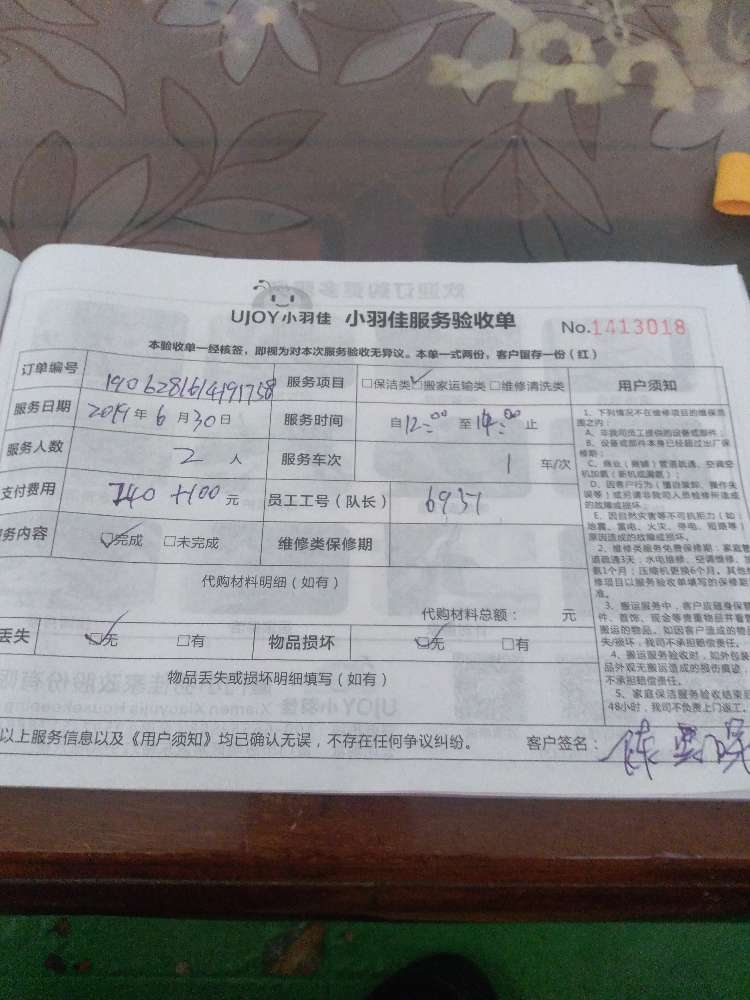 UJOY小羽佳 小羽佳服务验收单 No.1413018
本验收单一经核签，即视为对本次服务验收无异议。本单一式两份，客户留存一份（红）
订单编号 1906281614191758 服务项目 □保洁类 ☑搬家运输类 □维修清洗类 用户须知
服务日期 2019年6月30日 服务时间 自12:00至14:00止
服务人数 2人 服务车次 1 车/次
支付费用 740+100元 员工工号（队长） 6937
务内容 ☑完成 □未完成 维修类保修期
代购材料明细（如有）
代购材料总额： 元
丢失 ☑无 □有 物品损坏 ☑无 □有
物品丢失或损坏明细填写（如有）
以上服务信息以及《用户须知》均已确认无误，不存在任何争议纠纷。 客户签名：
1、下列情况不在维修项目的维保范
围之内：
A、非我司员工提供的设备或部件；
B、设备或部件本身已经超过出厂保
修期；
C、商业（商铺）管道疏通、空调空
机加氟（新机或漏氟）；
D、因客户行为（擅自装卸、操作失
误等）或另请非我司人员检修所造成
的故障或损坏；
E、因自然灾害等不可抗拒力（如：
地震、雷电、火灾、停电、短路等）
原因造成的故障或损坏。
2、维修类服务免费保修期：家庭管
道疏通3天；水电维修、空调维修、加
氟1个月；压缩机更换6个月。其他维
修项目以服务验收单填写的保修期
准。
3、搬运服务中，客户应随身保管
件、首饰、现金等贵重物品并看管
搬运的物品。如因客户造成的物品
失/损坏，我司不承担赔偿责任。
4、搬运服务验收时，如外包装
品外观无搬运造成的损伤痕迹，
不承担赔偿责任。
5、家庭保洁服务验收结束后
48小时，我司不负责上门返工。